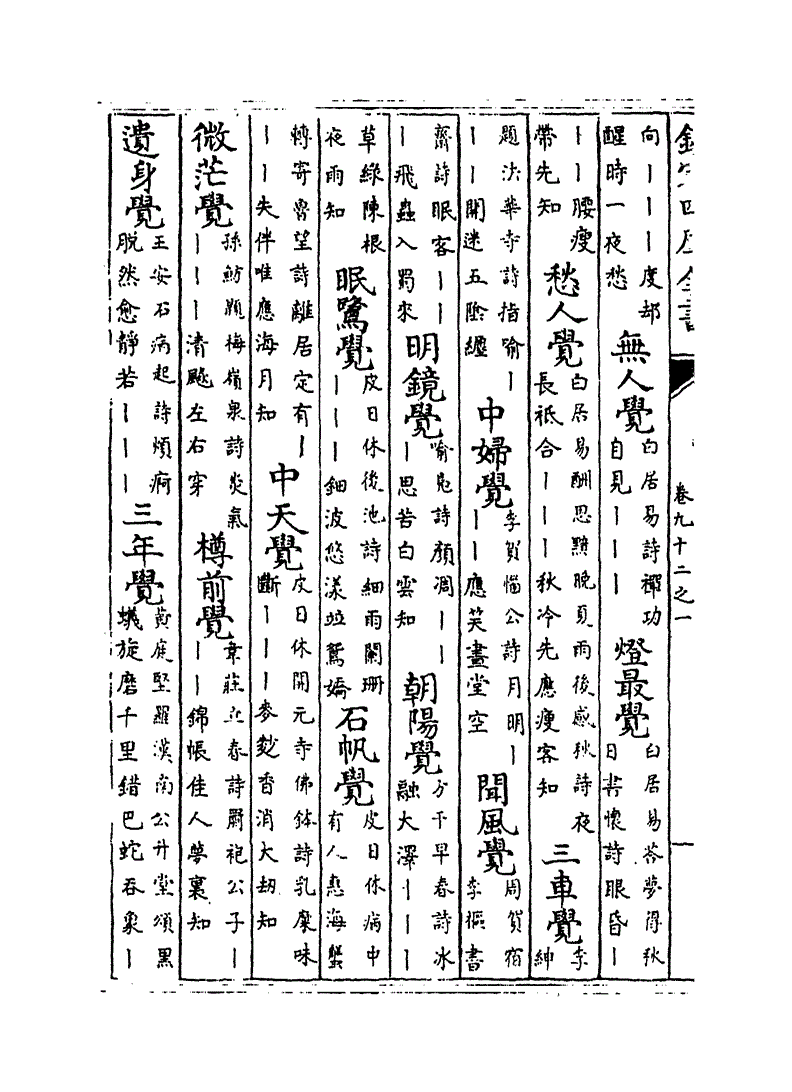 欽定四庫全書
卷九十二之一
向丨丨丨度却
醒時一夜愁
無人覺
白居易詩禪功
自見丨丨丨
燈最覺
白居易荅夢得秋
日書懷詩眼昏丨
丨丨腰瘦
帶先知
愁人覺
白居易酬思黯晚夏雨後感秋詩夜
長祗合丨丨丨秋冷先應瘦客知
三車覺
李
紳
題法華寺詩指喻丨
丨丨開迷五陰纏
中婦覺
李賀惱公詩月明丨
丨丨應笑畫堂空
聞風覺
周賀宿
李樞書
齋詩眠客丨丨
丨飛蟲入蜀來
明鏡覺
喻鳧詩顏凋丨丨
丨思苦白雲知
朝陽覺
方干早春詩冰
融大澤丨丨丨
草綠陳根
夜雨知
眠鷺覺
皮日休後池詩細雨闌珊
丨丨丨鈿波悠漾竝鴛嬌
石帆覺
皮日休病中
有人惠海蟹
轉寄魯望詩離居定有丨
丨丨失伴唯應海月知
中天覺
皮日休開元寺佛鉢詩乳麋味
斷丨丨丨麥麨香消大劫知
微茫覺
孫魴題梅嶺泉詩炎氣
丨丨丨清飈左右穿
樽前覺
韋莊立春詩罽袍公子丨
丨丨錦帳佳人夢裏知
遺身覺
王安石病起詩煩痾
脫然愈靜若丨丨丨
三年覺
黃庭堅羅漢南公升堂頌黑
蟻旋磨千里錯巴蛇吞象丨